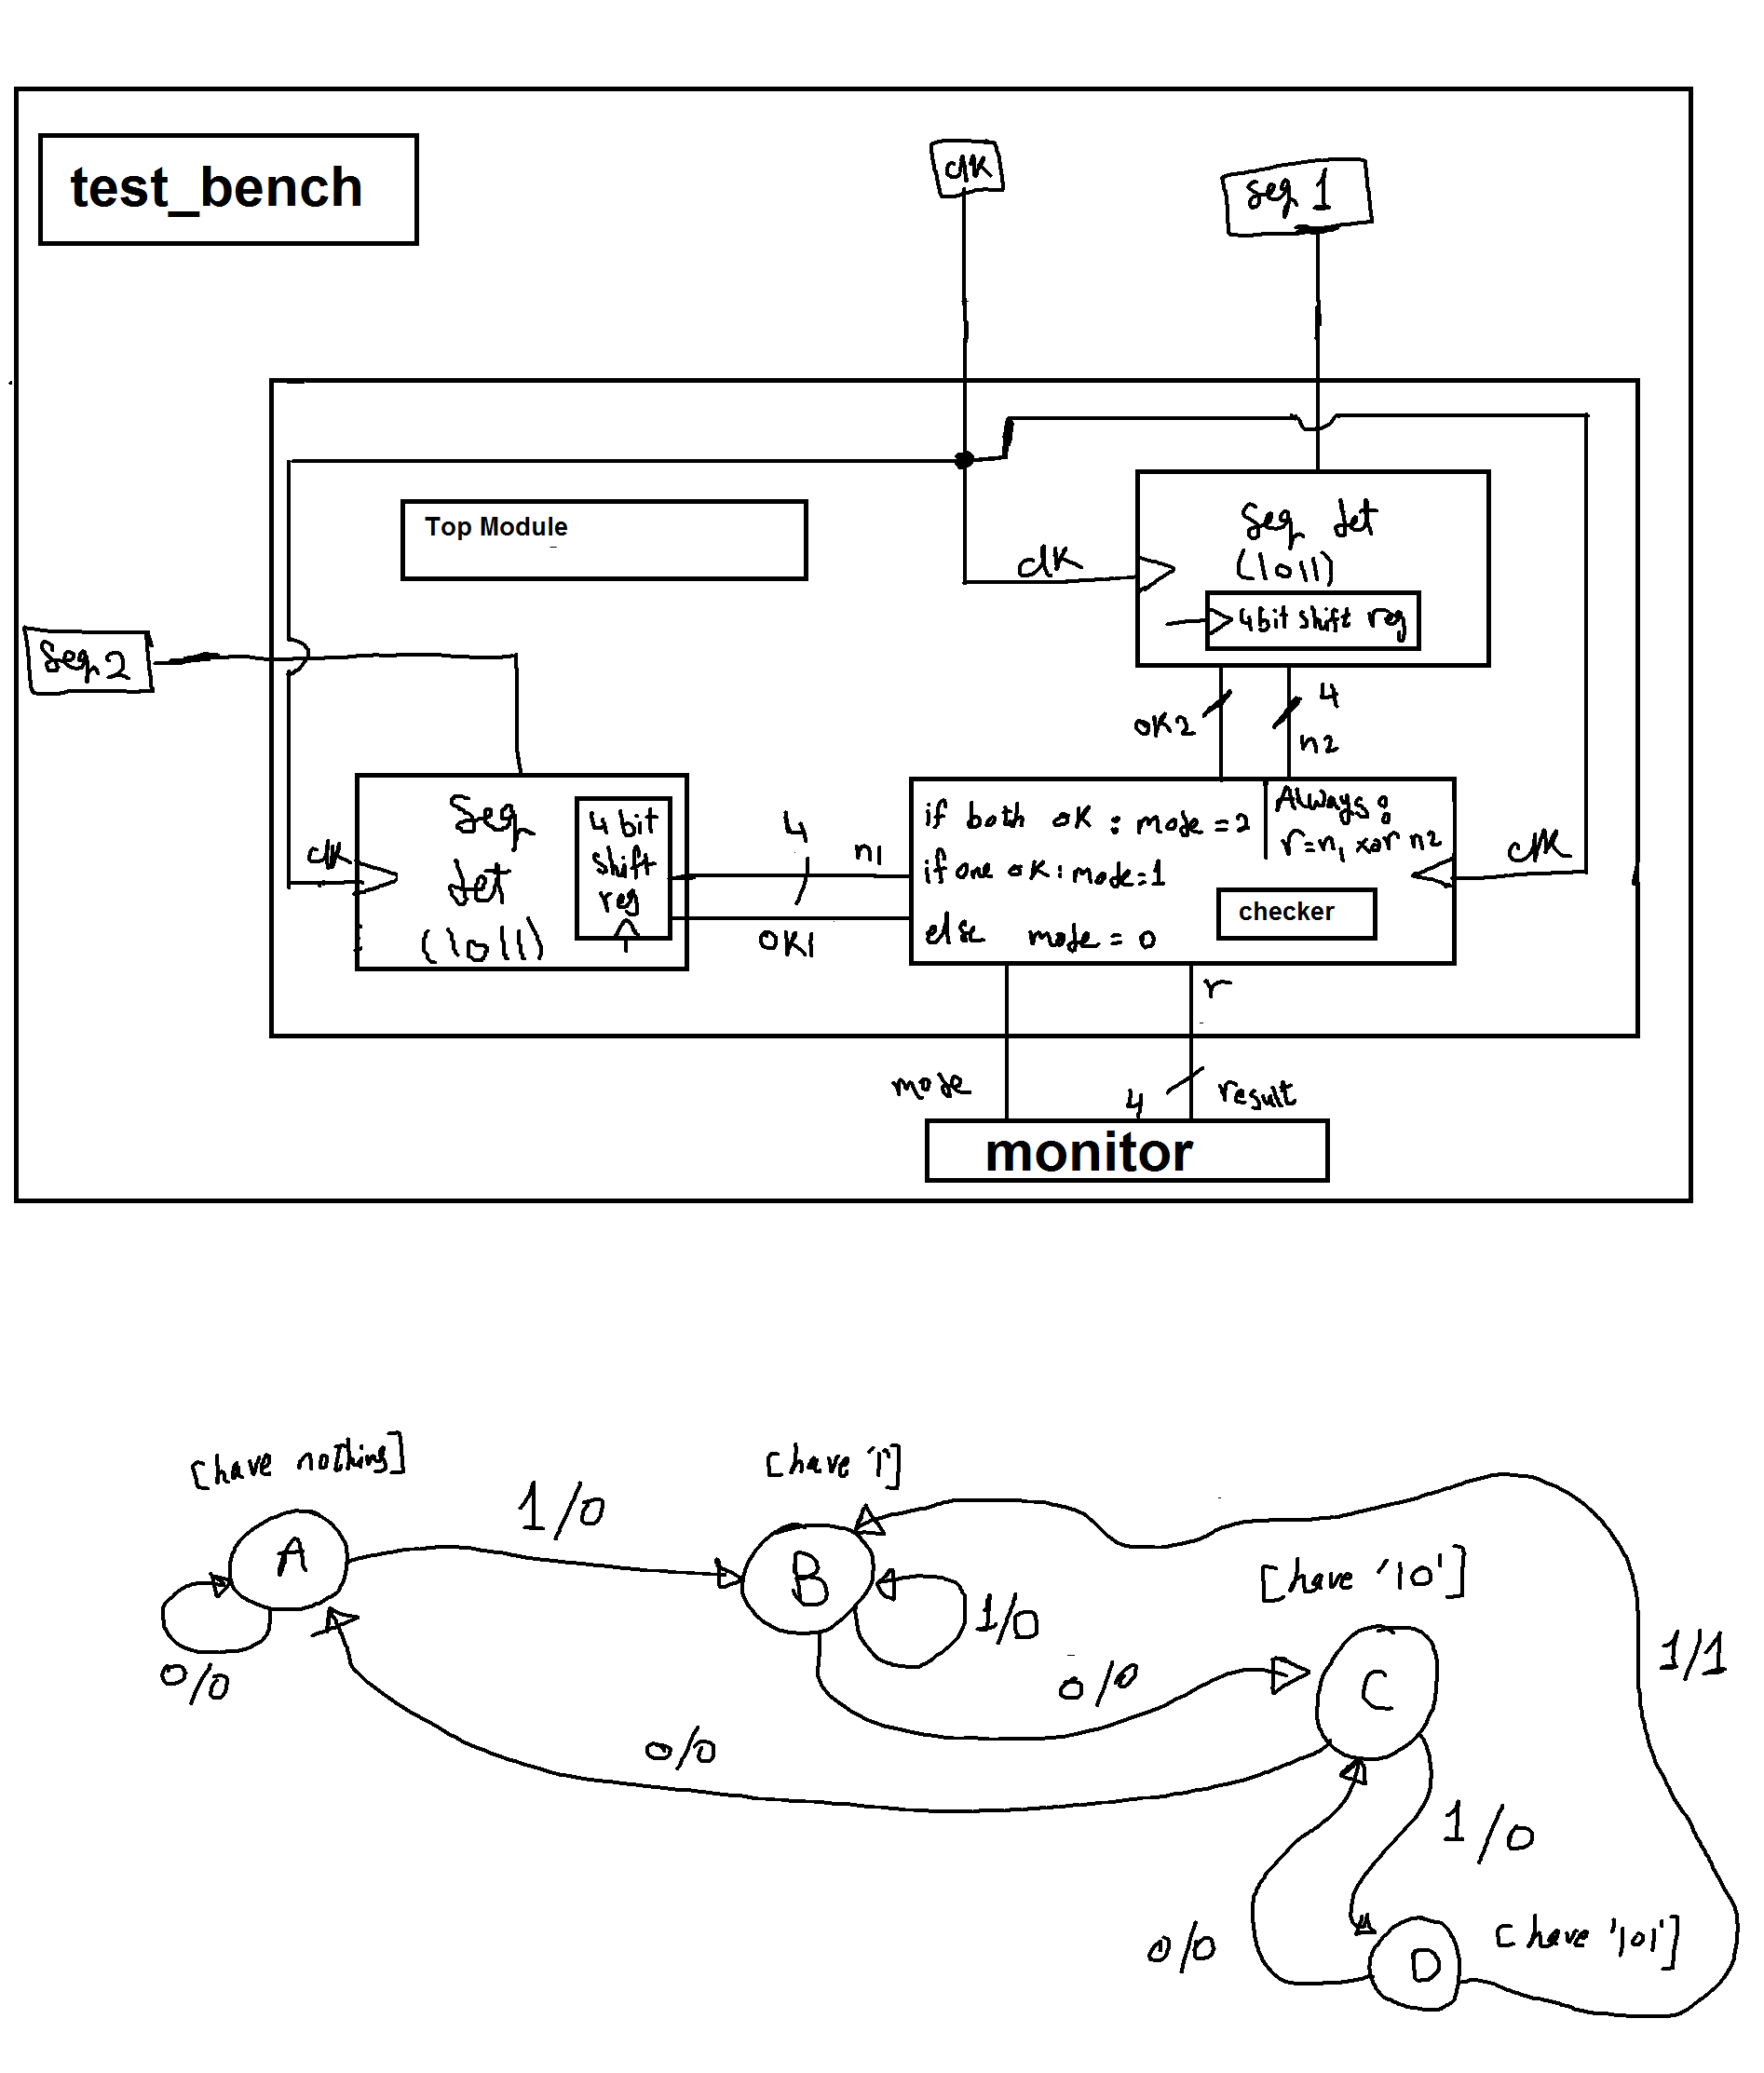 test_bench
clk
seq 1
Top Module
clk
seq det
(1011)
4 bit shift reg
seq 2
ok2
4
n2
seq
det
(1011)
4 bit
shift
reg
clk
4
n1
ok1
if both ok : mode = 2
if one ok : mode = 1
else mode = 0
Always :
r = n1 xor n2
checker
clk
r
mode
4
result
monitor
[have nothing]
A
0/0
1/0
[have '1']
B
1/0
0/0
0/0
[have '10']
C
1/1
1/0
0/0
D
[have '101']